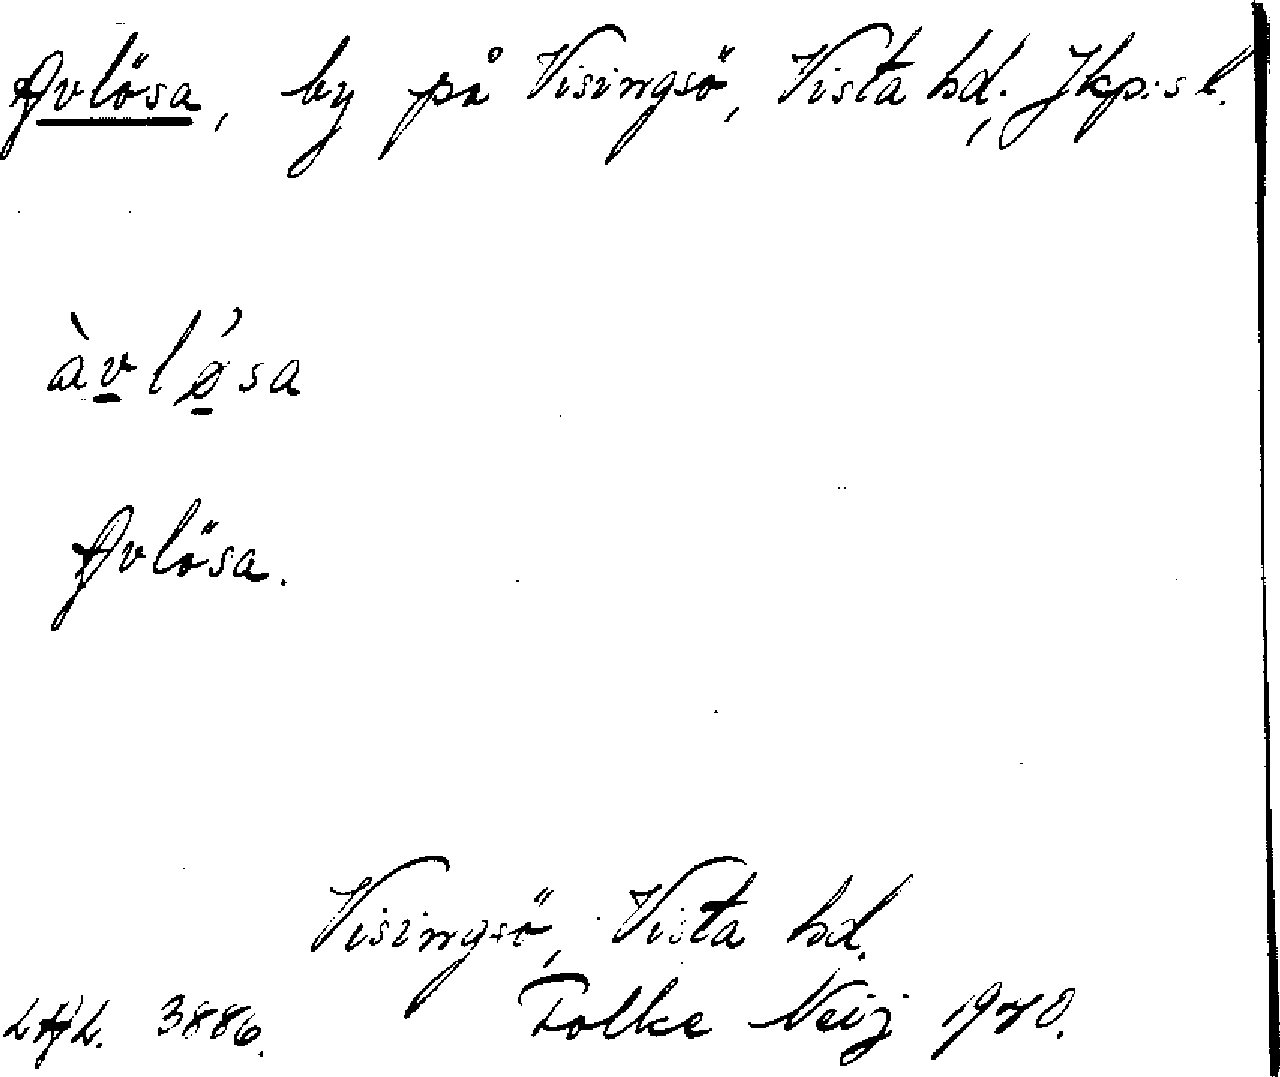 Avlösa, by på Visingsö, Vista hd, Jkp:s l.
àvlǿsa
Avlösa.
Visingsö, Vista hd.
LAL. 3886. Folke Neij 1940.